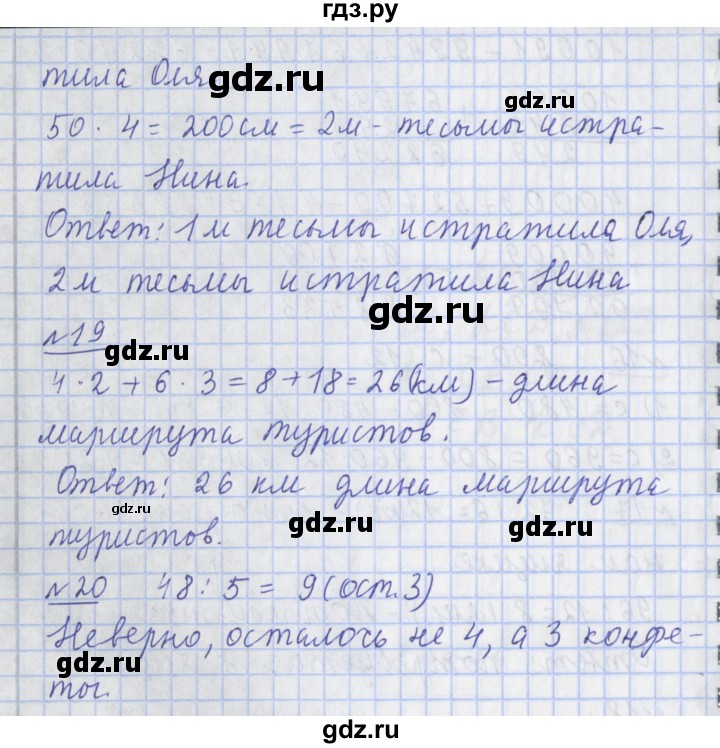 гдз.ру
тила Оля
gdz.ru
gdz.ru
50 · 4 = 200см = 2м - тесьмы истра-
тила Нина.
gdz.ru
gdz.ru
Ответ: 1м тесьмы истратила Оля,
2м тесьмы истратила Нина
gdz.ru
№19
gdz.ru
4 · 2 + 6 · 3 = 8 + 18 = 26(км) - длина
маршрута туристов.
Ответ: 26 км длина маршрута
gdz.ru
gdz.ru
gdz.ru
туристов.
№20 48 : 5 = 9 (ост. 3)
Неверно, осталось не 4, а 3 конфе-
gdz.ru
gdz.ru
ты.
gdz.ru
gdz.ru